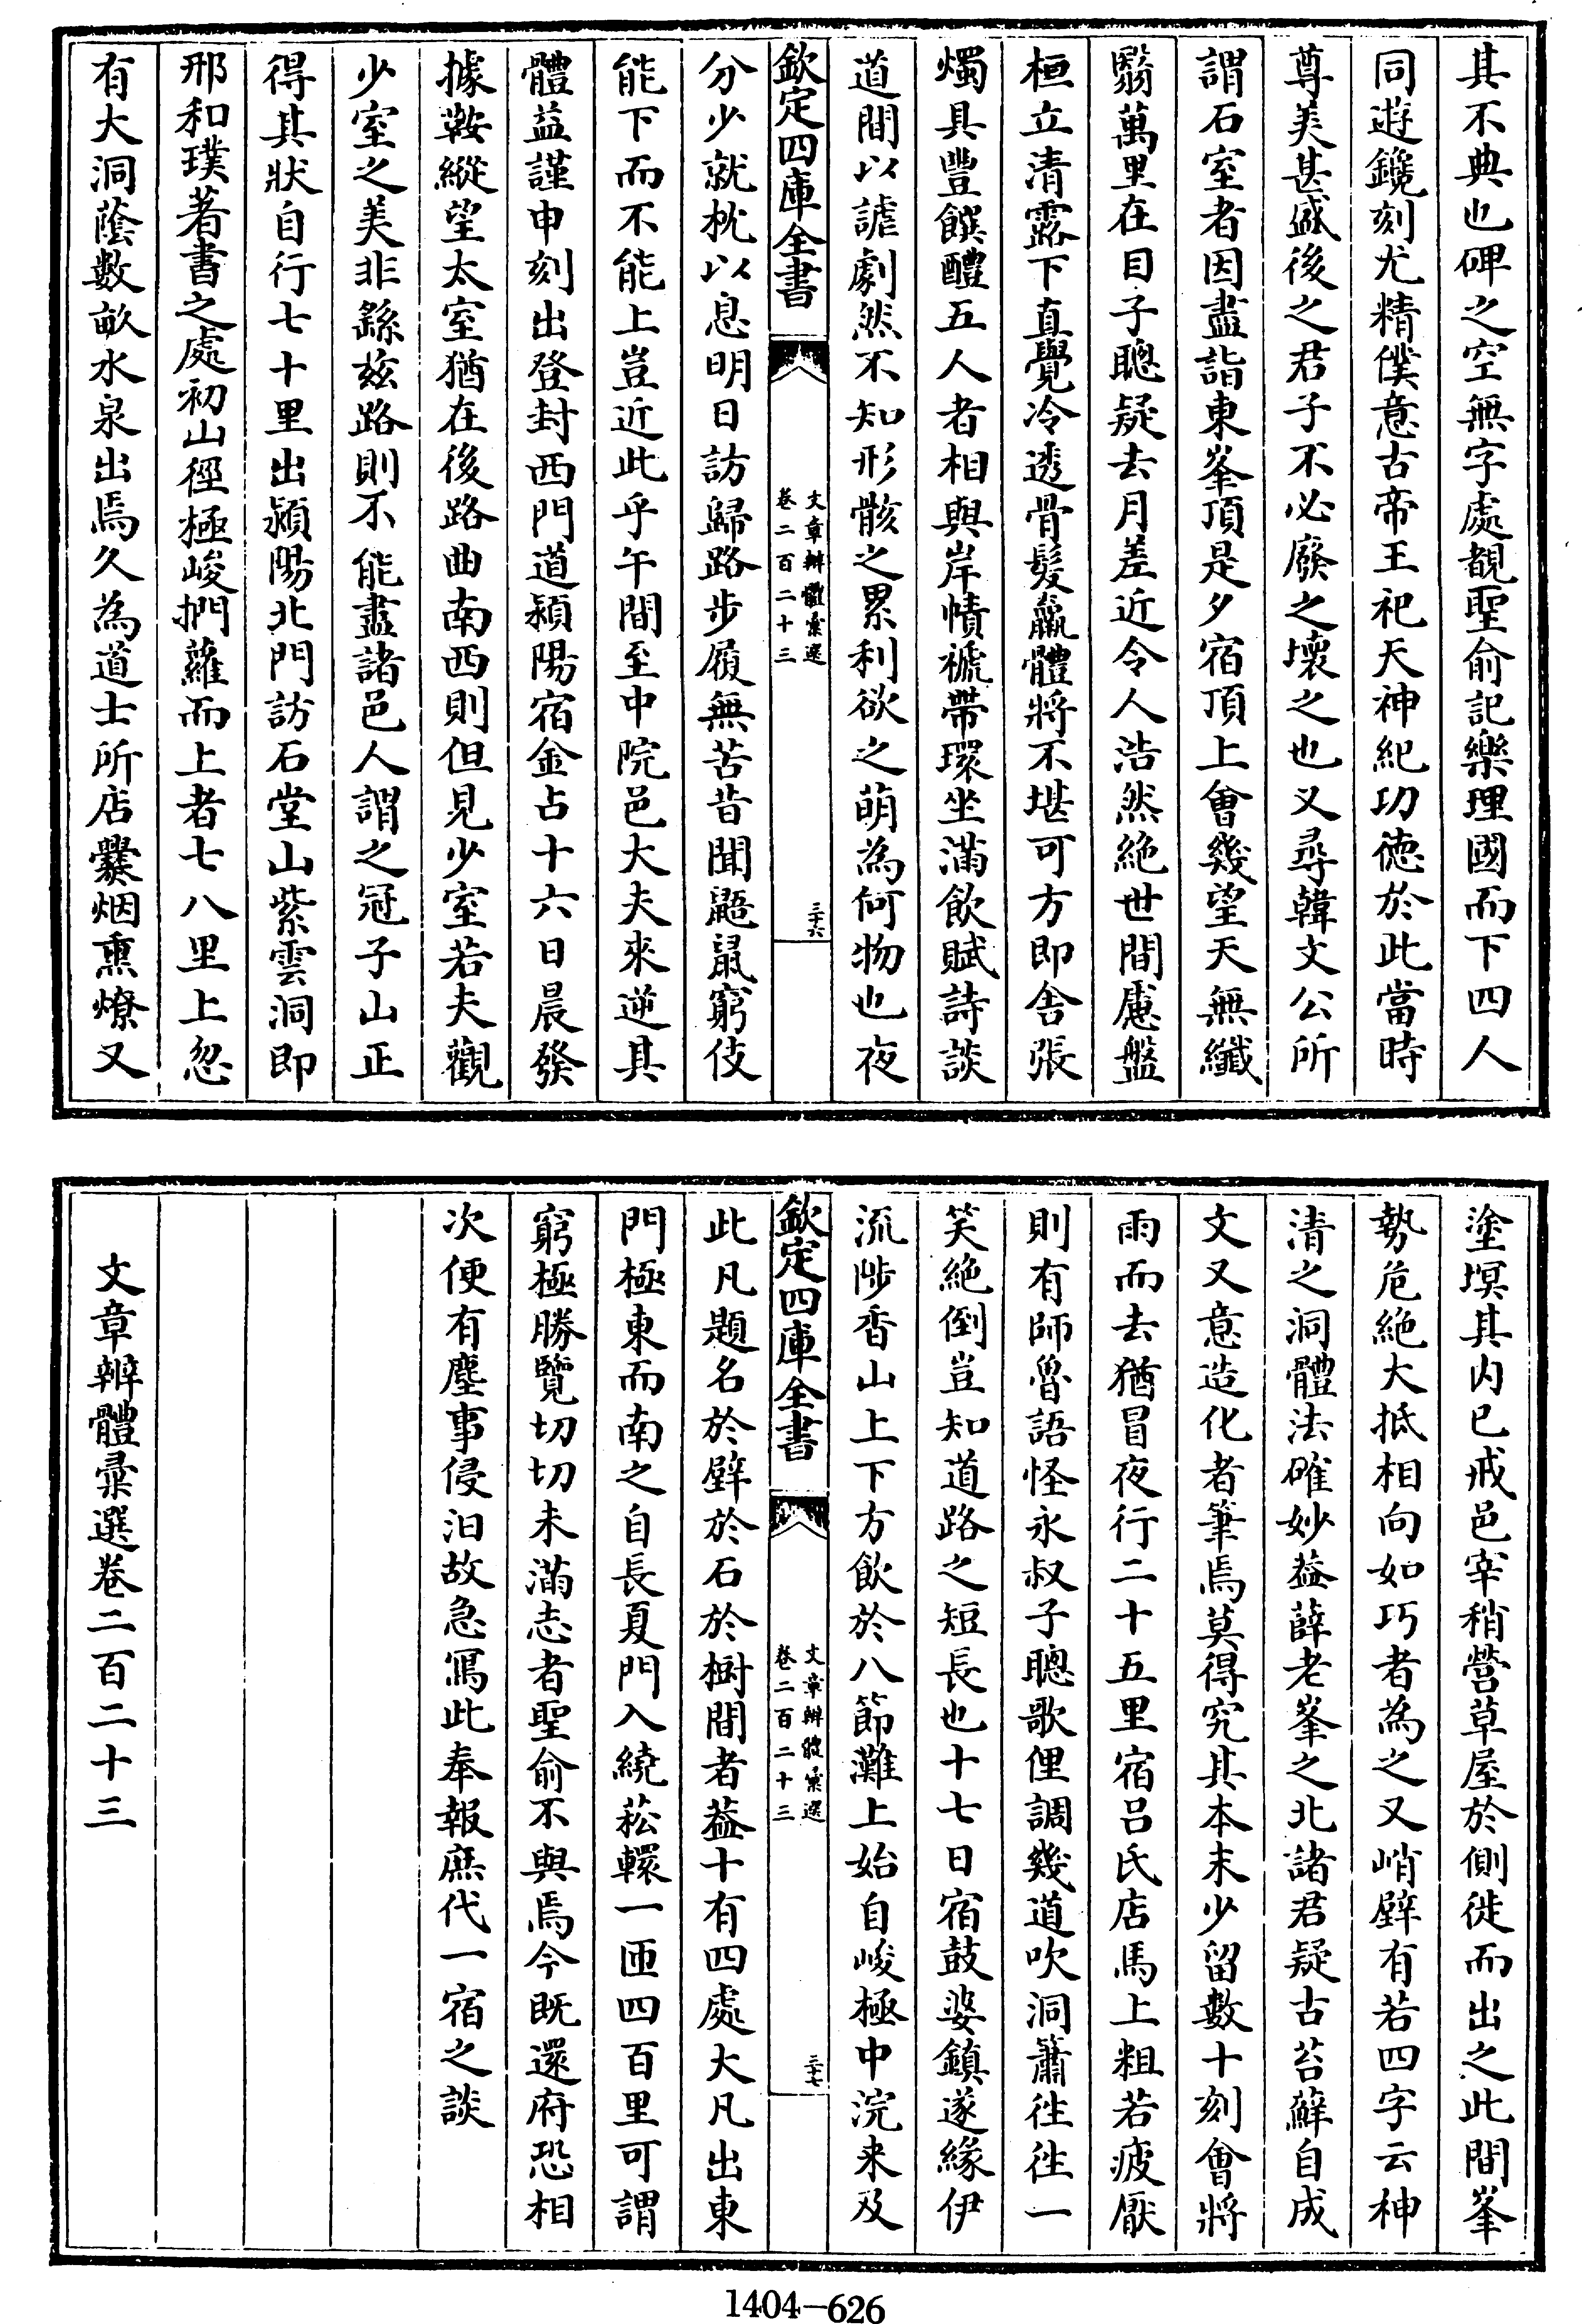 其不典也碑之空無字處覩聖俞記樂理國而下四人
同遊鑱刻尤精僕意古帝王祀天神紀功德於此當時
尊美甚盛後之君子不必廢之壞之也又尋韓文公所
謂石室者因盡詣東峯頂是夕宿頂上會幾望天無纖
翳萬里在目子聰疑去月差近令人浩然絶世間慮盤
桓立清露下直覺冷透骨髮羸體將不堪可方即舍張
燭具豐饌醴五人者相與岸幘褫帶環坐滿飲賦詩談
道間以謔劇然不知形骸之累利欲之萌為何物也夜
欽定四庫全書
文章辨體彙選
卷二百二十三
三十六
分少就枕以息明日訪歸路步履無苦昔聞鼯鼠窮伎
能下而不能上豈近此乎午間至中院邑大夫來逆其
體益謹申刻出登封西門道潁陽宿金占十六日晨發
據鞍縱望太室猶在後路曲南西則但見少室若夫觀
少室之美非繇茲路則不能盡諸邑人謂之冠子山正
得其狀自行七十里出潁陽北門訪石堂山紫雲洞即
邢和璞著書之處初山徑極峻捫蘿而上者七八里上忽
有大洞蔭數畝水泉出焉久為道士所店爨烟熏燎又
塗塓其内已戒邑宰稍營草屋於側徙而出之此間峯
勢危絶大抵相向如巧者為之又峭壁有若四字云神
清之洞體法確妙葢薛老峯之北諸君疑古苔蘚自成
文又意造化者筆焉莫得究其本末少留數十刻會將
雨而去猶冒夜行二十五里宿呂氏店馬上粗若疲厭
則有師魯語怪永叔子聰歌俚調幾道吹洞簫徃徃一
笑絶倒豈知道路之短長也十七日宿鼓婆鎮遂緣伊
流陟香山上下方飲於八節灘上始自峻極中浣来及
欽定四庫全書
文章辨體彙選
卷二百二十三
三十七
此凡題名於壁於石於樹間者葢十有四處大凡出東
門極東而南之自長夏門入繞菘轘一匝四百里可謂
窮極勝覽切切未滿志者聖俞不與焉今既還府恐相
次便有塵事侵汨故急寫此奉報庶代一宿之談
文章辨體彙選卷二百二十三
1404-626